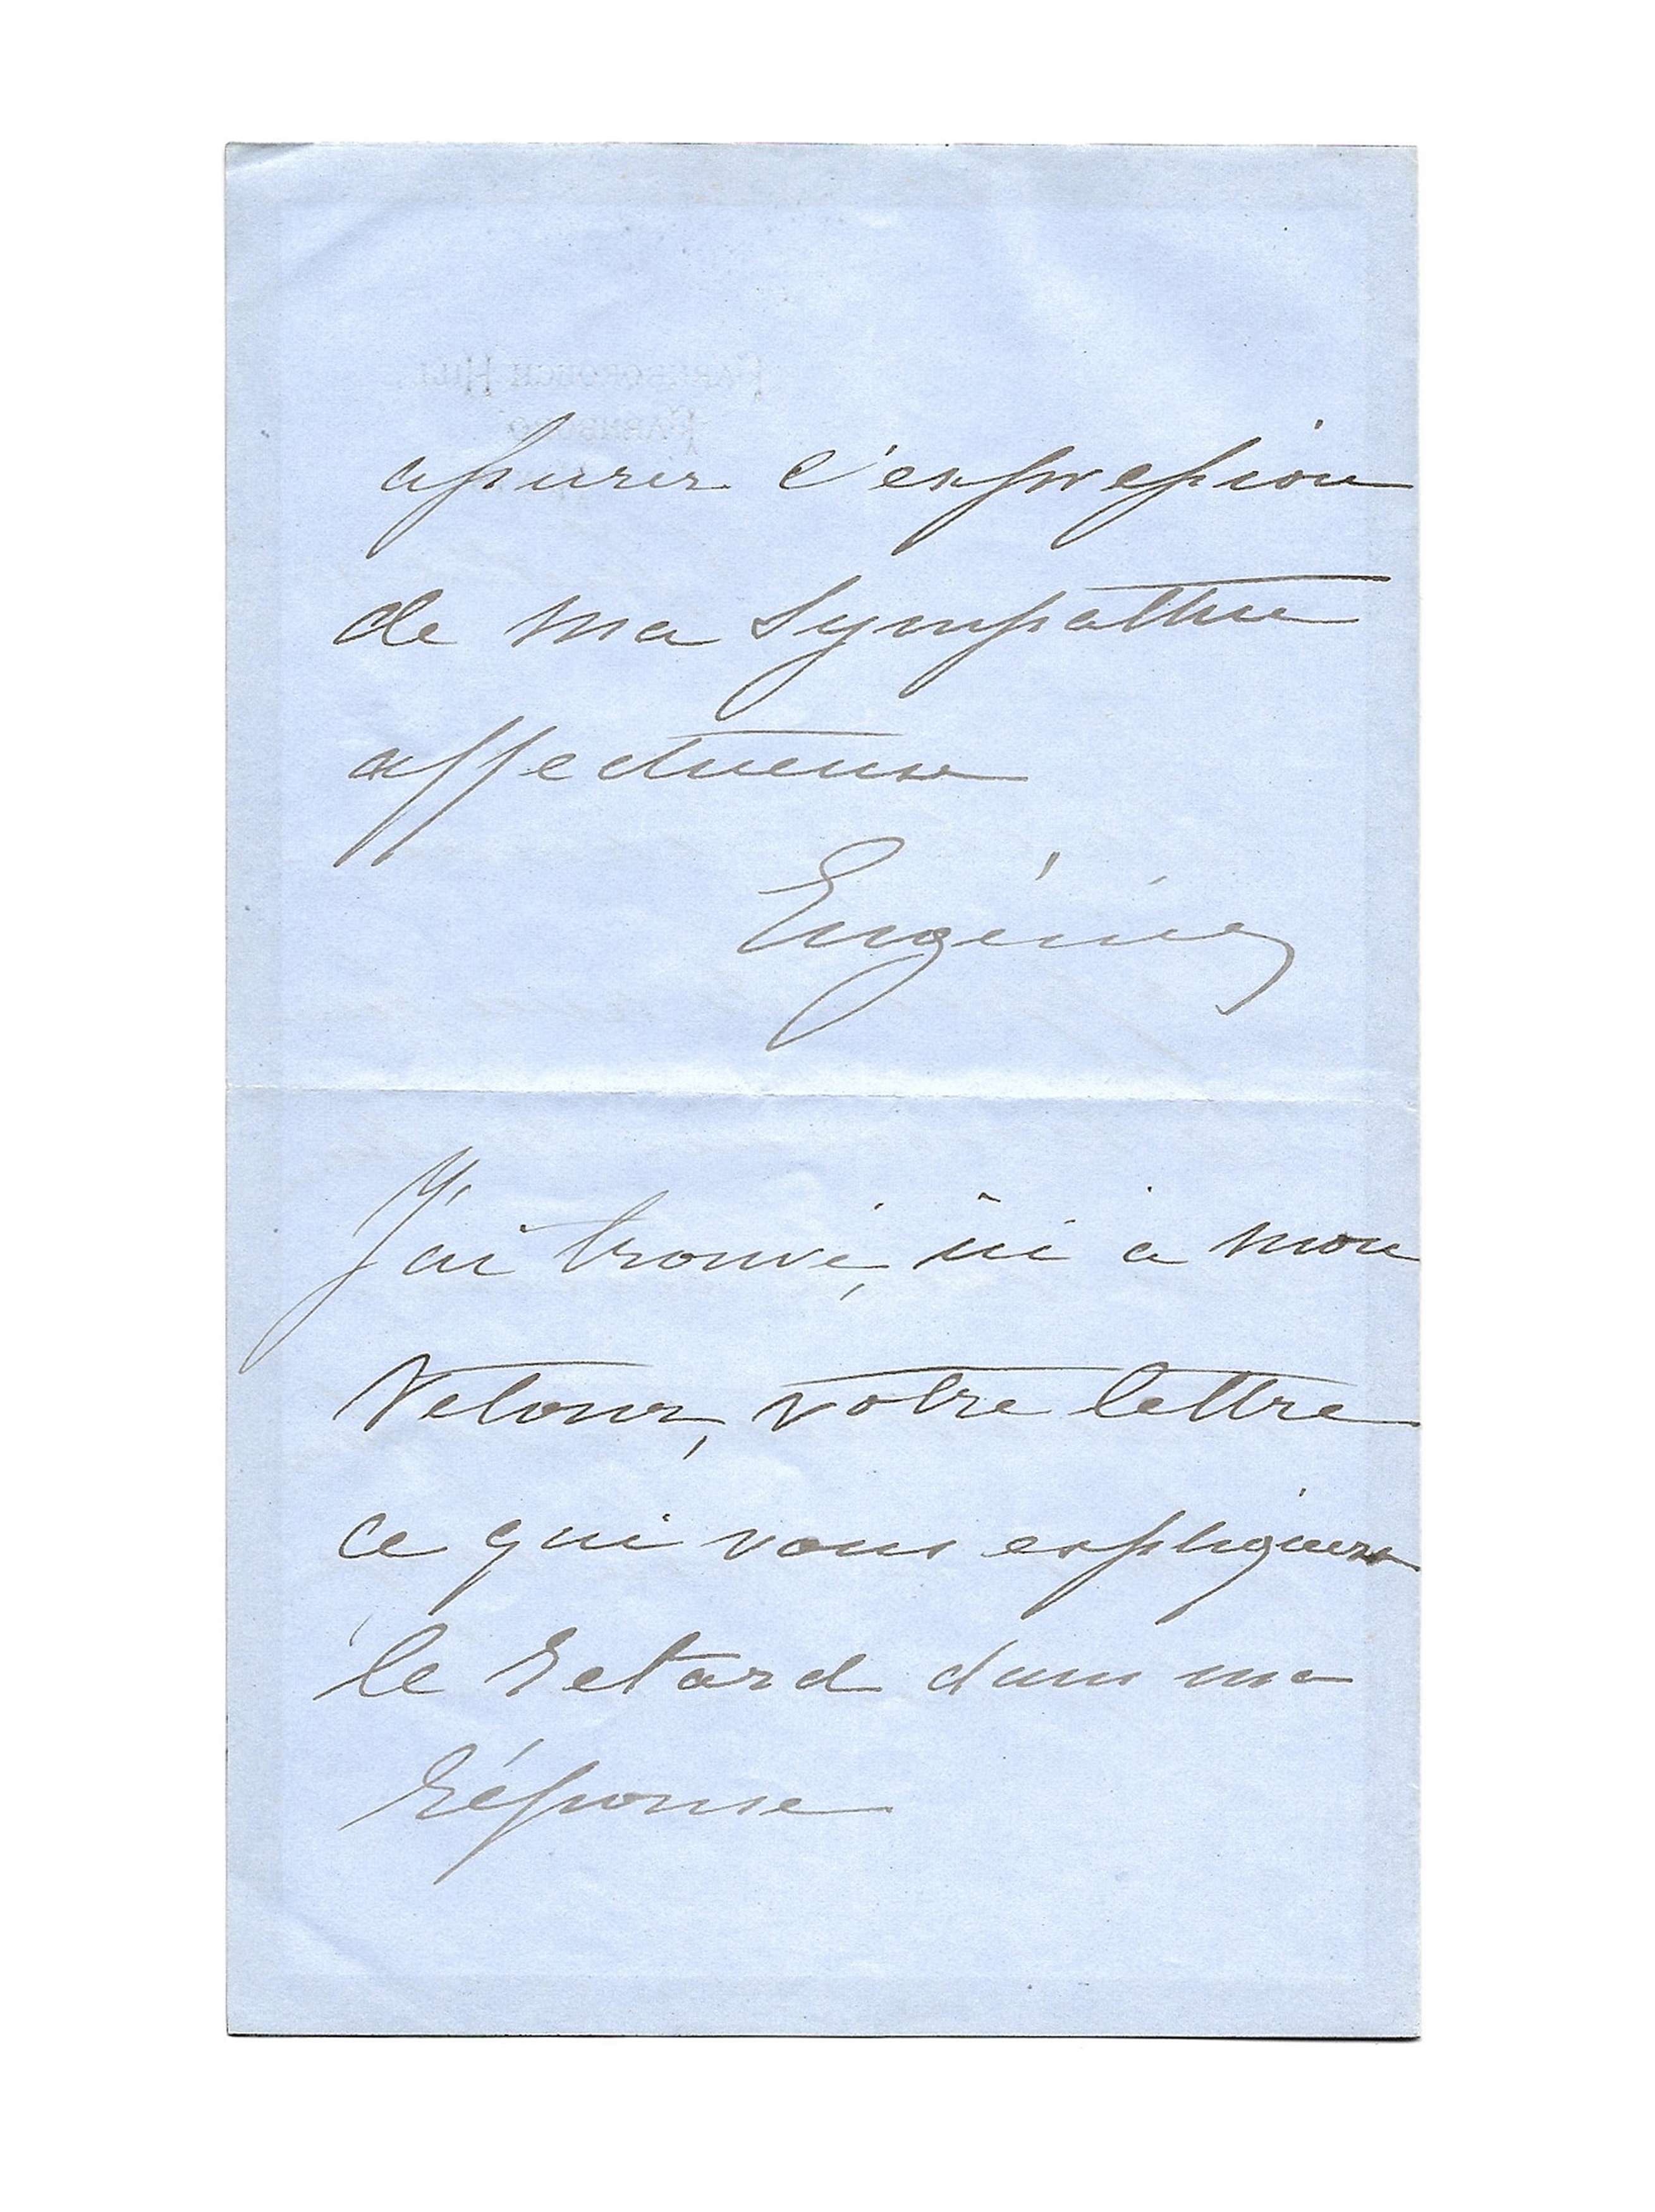 FARNBOROUGH HILL
FARNBORO
assurer l'expression
de ma sympathie
affectueuse
Eugénie
J'ai trouvé, ici a mon
retour, votre lettre
ce qui vous expliquera
le retard dans ma
réponse